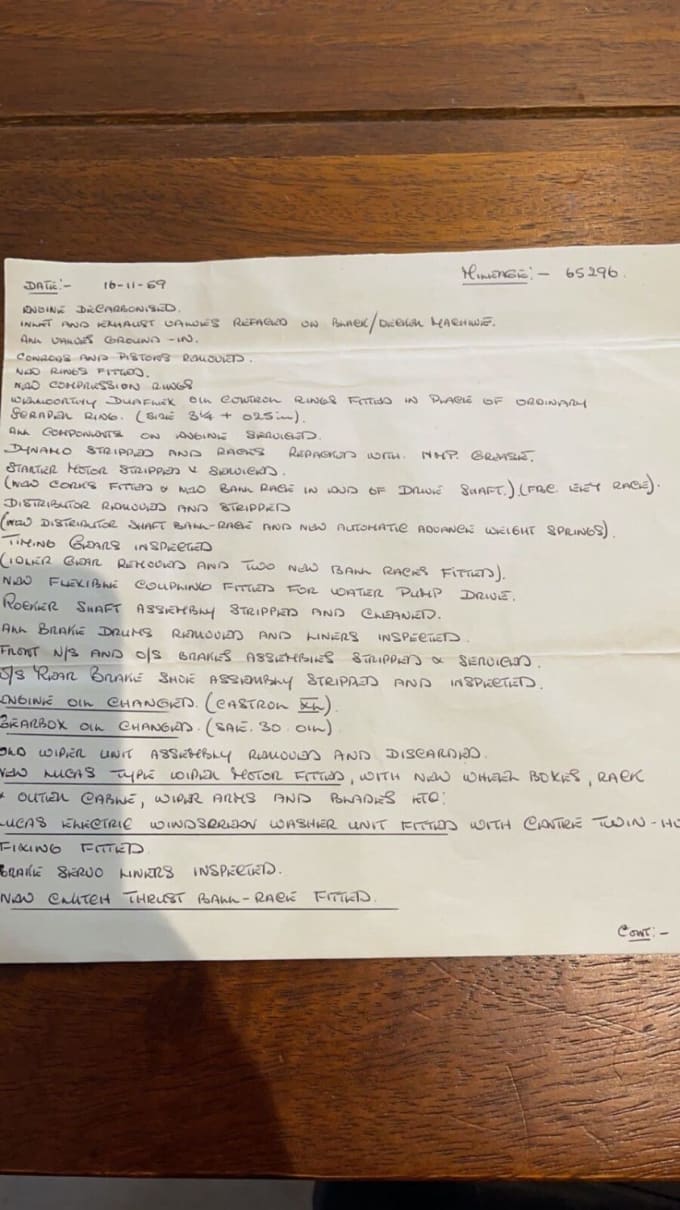 DATE:- 16-11-69
MILEAGE:- 65296.
ENGINE DECARBONISED.
INLET AND EXHAUST VALVES REFACED ON BLACK/DECKER MACHINE.
ALL VALVES GROUND-IN.
CONRODS AND PISTONS REMOVED.
NEW RINGS FITTED.
NEW COMPRESSION RINGS
WELLWORTHY DUAFLEX OIL CONTROL RINGS FITTED IN PLACE OF ORDINARY
SCRAPER RING. (SIZE 3¼ + 025in).
ALL COMPONENTS ON ENGINE SERVICED.
DYNAMO STRIPPED AND RACES REPACKED WITH. HMP. GREASE.
STARTER MOTOR STRIPPED & SERVICED.
(NEW CORKS FITTED & NEW BALL RACE IN END OF DRIVE SHAFT.) RACE).
DISTRIBUTOR REMOVED AND STRIPPED
(NEW DISTRIBUTOR SHAFT BALL-RACE AND NEW AUTOMATIC ADVANCE WEIGHT SPRINGS).
TIMING GEARS INSPECTED
(IDLER GEAR REMOVED AND TWO NEW BALL RACES FITTED).
NEW FLEXIBLE COUPLING FITTED FOR WATER PUMP DRIVE.
ROCKER SHAFT ASSEMBLY STRIPPED AND CLEANED.
ALL BRAKE DRUMS REMOVED AND LINERS INSPECTED.
FRONT N/S AND O/S BRAKES ASSEMBLIES STRIPPED & SERVICED.
O/S REAR BRAKE SHOE ASSEMBLY STRIPPED AND INSPECTED.
ENGINE OIL CHANGED. (CASTROL XL).
GEARBOX OIL CHANGED. (SAE. 30. OIL)
OLD WIPER UNIT ASSEMBLY REMOVED AND DISCARDED.
NEW LUCAS TYPE WIPER MOTOR FITTED, WITH NEW WHEEL BOXES, RACK
& OUTER CABLE, WIPER ARMS AND BLADES ETC:
LUCAS ELECTRIC WINDSCREEN WASHER UNIT FITTED WITH CENTRE TWIN-HO
FIXING FITTED.
BRAKE SERVO LINERS INSPECTED.
NEW CLUTCH THRUST BALL-RACE FITTED.
CONT:-